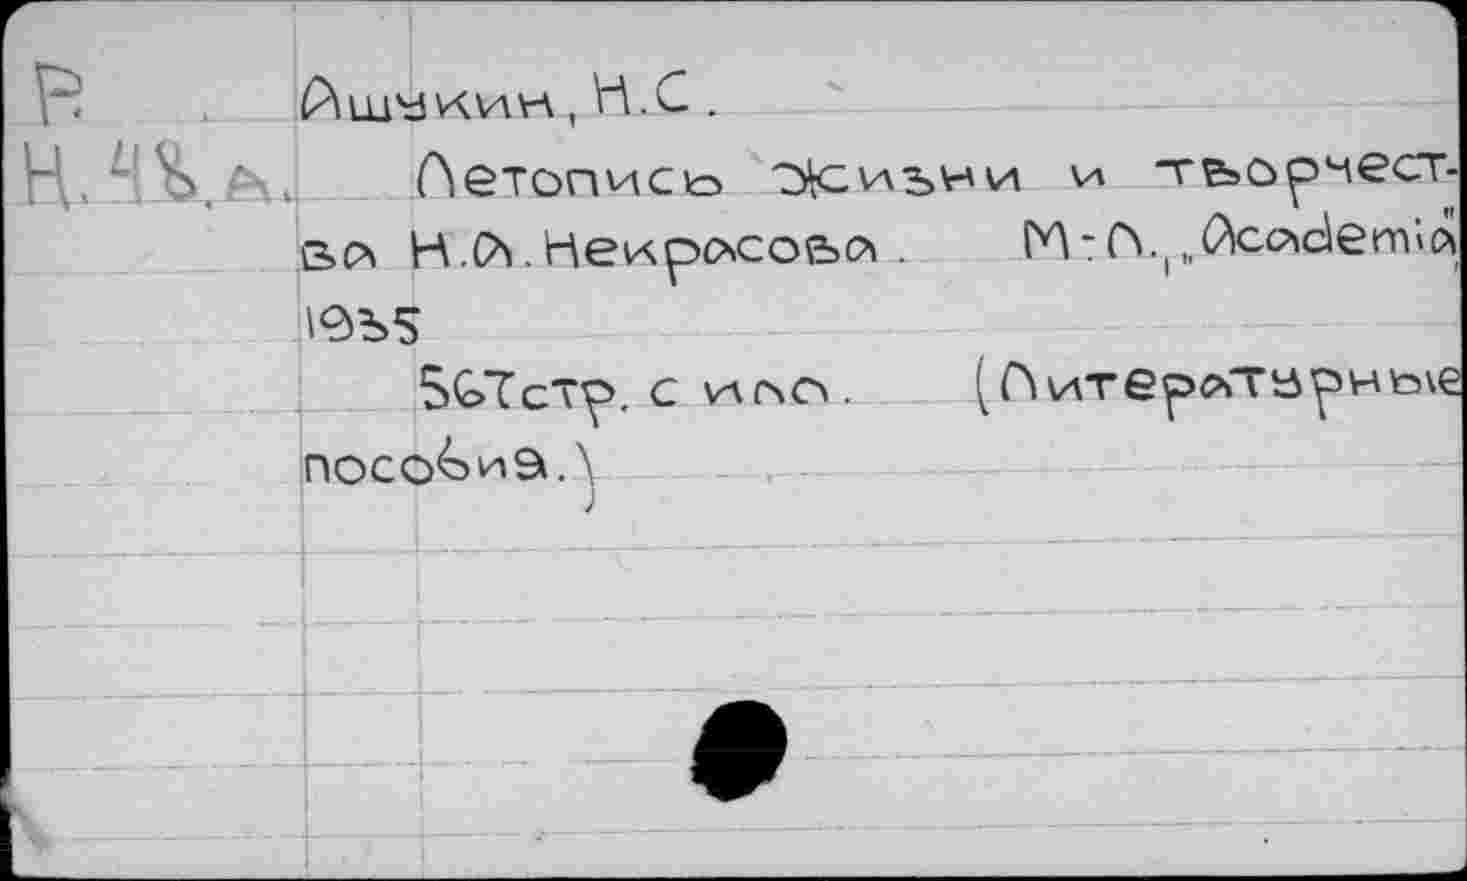 Р. Ашукин, Н.С.
Н.48.А. Летопись жизни и творчест-
ва Н.А. Некрасова. М:Л., „Academia",
1935
567стр. с илл. (Литературные
пособия.)